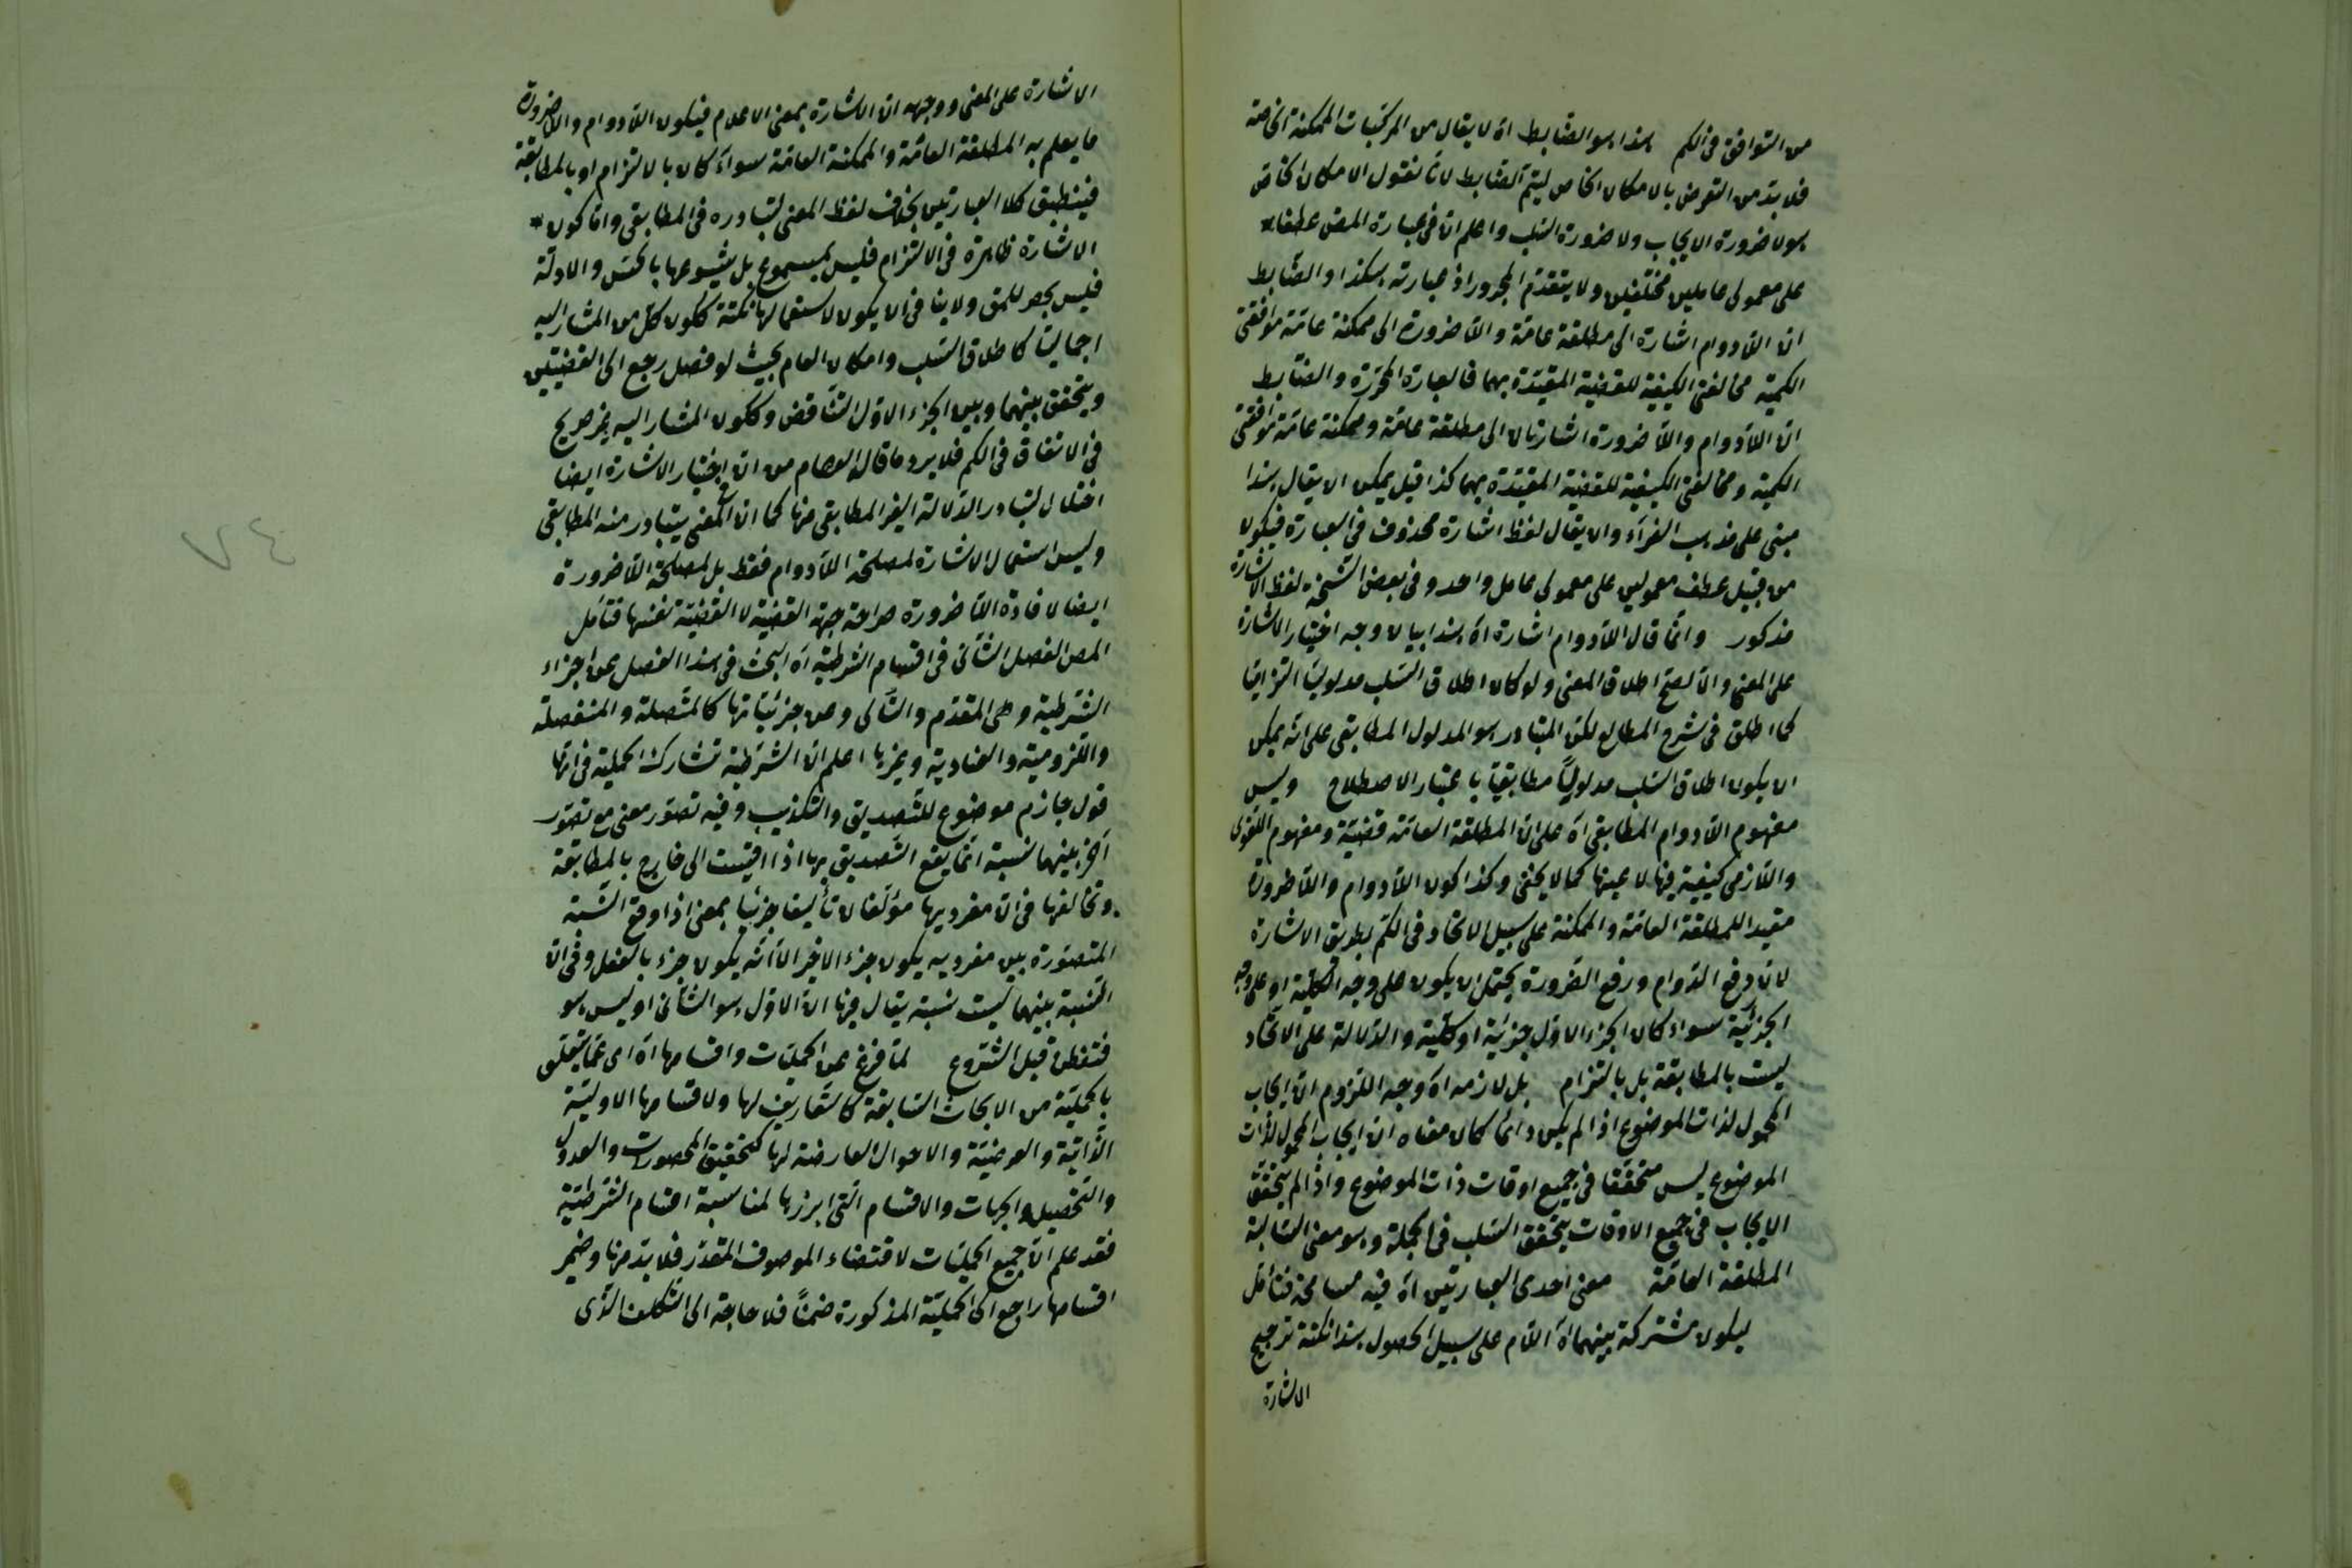 من التوافق فى الكم هذا هو الضابط اه لا يقال من المركبات الممكنة الخاصة
فلا بد من التعرض بالامكان الخاص ليتم الضابط لانا نقول الامكان الخاص
هو لا ضرورة الايجاب ولا ضرورة السلب واعلم ان فى عبارة المص عطفا
على معمولى عاملين مختلفين ولا يتقدم المجرور اذ عبارته هكذا والضابط
ان اللادوام اشارة الى مطلقة عامة واللاضرورة الى ممكنة عامة موافقتى
الكمية مخالفتى الكيفية للقضية المقيدة بهما فالعبارة المحررة والضابط
ان اللادوام واللاضرورة اشارتان الى مطلقة عامة وممكنة عامة موافقتى
الكمية ومخالفتى الكيفية للقضية المقيدة بهما كذا قيل يمكن ان يقال هذا
مبنى على مذهب الفراء وان يقال لفظ اشارة محذوف فى العبارة فيكون
من قبيل عطف معمولين على معمولى عامل واحد وفى بعض النسخة لفظ الاشارة
مذكور وانما قال اللادوام اشارة اه هذا بيان وجه اختيار الاشارة
على المعنى والا لصح اطلاق المعنى ولو كان اطلاق السلب مدلوليا التزاميا
كما اطلق فى شرح المطالع لكن المتبادر هو المدلول المطابقى على انه يمكن
ان يكون اطلاق السلب مدلوليا مطابقيا باعتبار الاصطلاح وليس
مفهوم اللادوام المطابقى اه على ان المطلقة العامة قضية ومفهوم اللغوى
واللازمى كيفية فيها لا عينها كما لا يخفى وكذا كون اللادوام واللاضرورة
مقيدا للمطلقة العامة والممكنة على سبيل الاتحاد فى الكم بطريق الاشارة
لان رفع الدوام ورفع الضرورة يحتمل ان يكون على وجه الكلية او على وجه
الجزئية سواء كان الجزء الاول جزئية او كلية والدلالة على الاتحاد
ليست بالمطابقة بل بالتزام بل لازمه اه وجه اللزوم ان ايجاب
المحمول لذات الموضوع اذا لم يكن دائما كان معناه ان ايجاب المحمول لذات
الموضوع ليس متحققا فى جميع اوقات ذات الموضوع واذا لم يتحقق
الايجاب فى جميع الاوقات يتحقق السلب فى الجملة وهو معنى السالبة
المطلقة العامة معنى احدى العبارتين اه فيه مسامحة فتأمل
ليكون مشتركة بينهما اه اللام على سبيل الحصول هذا نكتة ترجيح
الاشارة
الاشارة على المعنى ووجهه ان الاشارة بمعنى الاعلام فيكون اللادوام واللاضرورة
ما يعلم به المطلقة العامة والممكنة العامة سواء كان بالالتزام او بالمطابقة
فينطبق كلا العبارتين بخلاف لفظ المعنى لتبادره فى المطابقى واما كون
الاشارة ظاهرة فى الالتزام فليس بمسموع بل شيوعها بالحس والادلة
فليس بحصر للمق ولا ينافى ان يكون لاستعمالها نكتة ككون كل من المشار اليه
اجماليا كاطلاق السلب وامكان العام بحيث لو فصل رجع الى القضيتين
ويتحقق بينهما وبين الجزء الاول التناقض وككون المشار اليه غير صريح
فى الاتفاق فى الكم فلا يرد ما قاله العصام من ان اختيار الاشارة ايضا
اختلال لتبادر الدلالة الغير المطابقى منها كما ان المعنى يتبادر منه المطابقى
وليس استعمال الاشارة لمصلحة اللادوام فقط بل لمصلحة اللاضرورة
ايضا لافادة اللاضرورة صراحة جهة القضية لا القضية نفسها فتأمل
المص الفصل الثانى فى اقسام الشرطية اه البحث فى هذا الفصل عن اجزاء
الشرطية وهى المقدم والتالى وعن جزئياتها كالمتصلة والمنفصلة
واللزومية والعنادية وغيرها اعلم ان الشرطية تشارك الحملية فى انها
قول جازم موضوع للتصديق والتكذيب وفيه تصور معنى مع تصور
آخر بينهما نسبة انما يقع التصديق بها اذا اقيست الى خارج بالمطابقة
وتخالفها فى ان مفرديها مؤلفان تأليفا جزئيا بمعنى اذا وقع النسبة
المتصورة بين مفرديه يكون جزء الاخير الا انه يكون جزء بالفعل وفى ان
النسبة بينهما ليست نسبة يقال فيها ان الاول هو الثانى او ليس هو
فتفطن قبل الشروع لما فرغ عن الحمليات واقسامها اه اى عما يتعلق
بالحملية من الابحاث السابقة كالتعاريف لها ولاقسامها الاولية
الذاتية والعرضية والاحوال العارضة لها كتحقيق المحصورات والعدول
والتحصيل والجهات والاقسام التى ابرزها لمناسبة اقسام الشرطية
فقد علم ان جميع الحمليات لاقتضاء الموصوف المقدر فلا بد منها وضمير
اقسامها راجع الى الحملية المذكورة ضمنا فلا حاجة الى التكلف الذى
٧٤